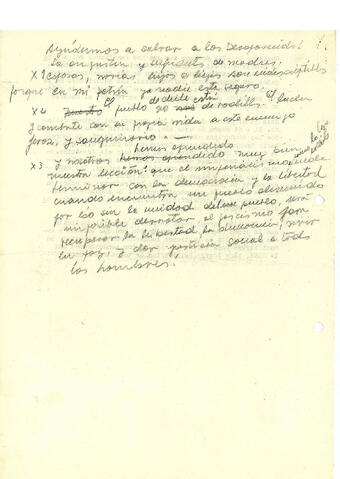 Ayúdennos a salvar a los Desaparecidos!
la angustia y de madres,
X1 esposas, novias hijos e hijas son indescriptibles
porque en mi patria ya nadie está seguro.
X2 Nuestro El pueblo de Chile está de rodillas. El lucha
y combate con su propia vida a este enemigo
feroz, y sanguinario. —
hemos aprendido
X3 y nosotros hemos aprendido muy bien la
nuestra lección: que el imperialismo puede
terminar con la democracia y la libertad
cuando encuentra un pueblo desunido
por eso sin la unidad del pueblo, será
imposible derrotar al fascismo para
recuperar la libertad, la democracia, vivir
en paz, y dar justicia social a todos
los hombres.